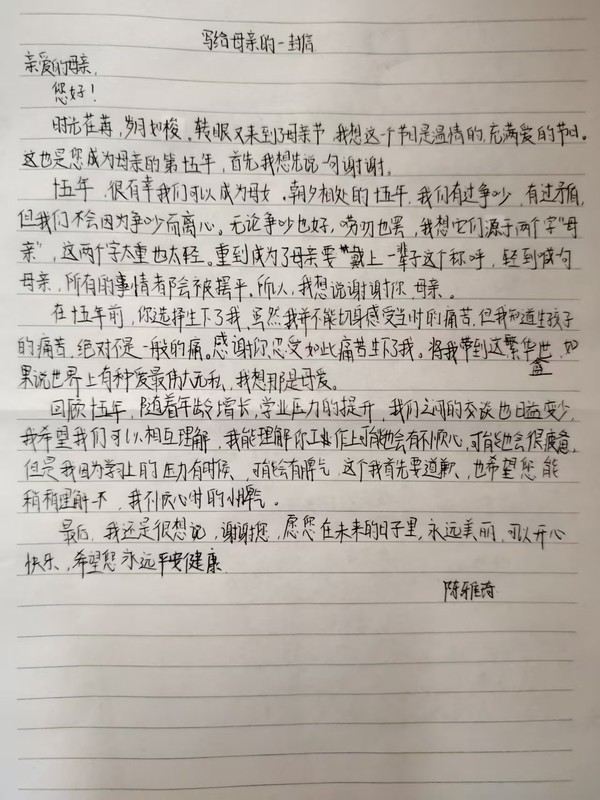 写给母亲的一封信
亲爱的母亲，
您好！
时光荏苒，岁月如梭，转眼又来到了母亲节，我想这一个节日是温情的，充满爱的节日。
这也是您成为母亲的第十五年，首先我想先说一句谢谢。
十五年，很有幸我们可以成为母女，朝夕相处的十五年，我们有过争吵，有过矛盾，
但我们不会因为争吵而离心。无论争吵也好，唠叨也罢，我想它们源于两个字"母
亲"，这两个字太重也太轻。重到成为了母亲要"戴上一辈子这个称呼，轻到喊句
母亲，所有的事情都会被摆平。所以，我想说谢谢你，母亲。
在十五年前，你选择生下了我，虽然我并不能切身感受当时的痛苦，但我知道生孩子
的痛苦，绝对不是一般的痛。感谢你忍受如此痛苦生下了我。将我带到这繁华世，如
果说世界上有种爱最伟大无私，我想那是母爱。
回顾十五年，随着年龄增长，学业压力的提升，我们之间的交谈也日益变少，
我希望我们可以相互理解，我能理解你工作上可能也会有不顺心，可能也会很疲惫，
但是我因为学习上的压力有时候，可能会有脾气，这个我首先要道歉，也希望您能
稍稍理解一下，我不顺心时的小脾气。
最后，我还是很想说，谢谢您，愿您在未来的日子里，永远美丽，可以开心
快乐，希望您永远平安健康。
陈雅琦